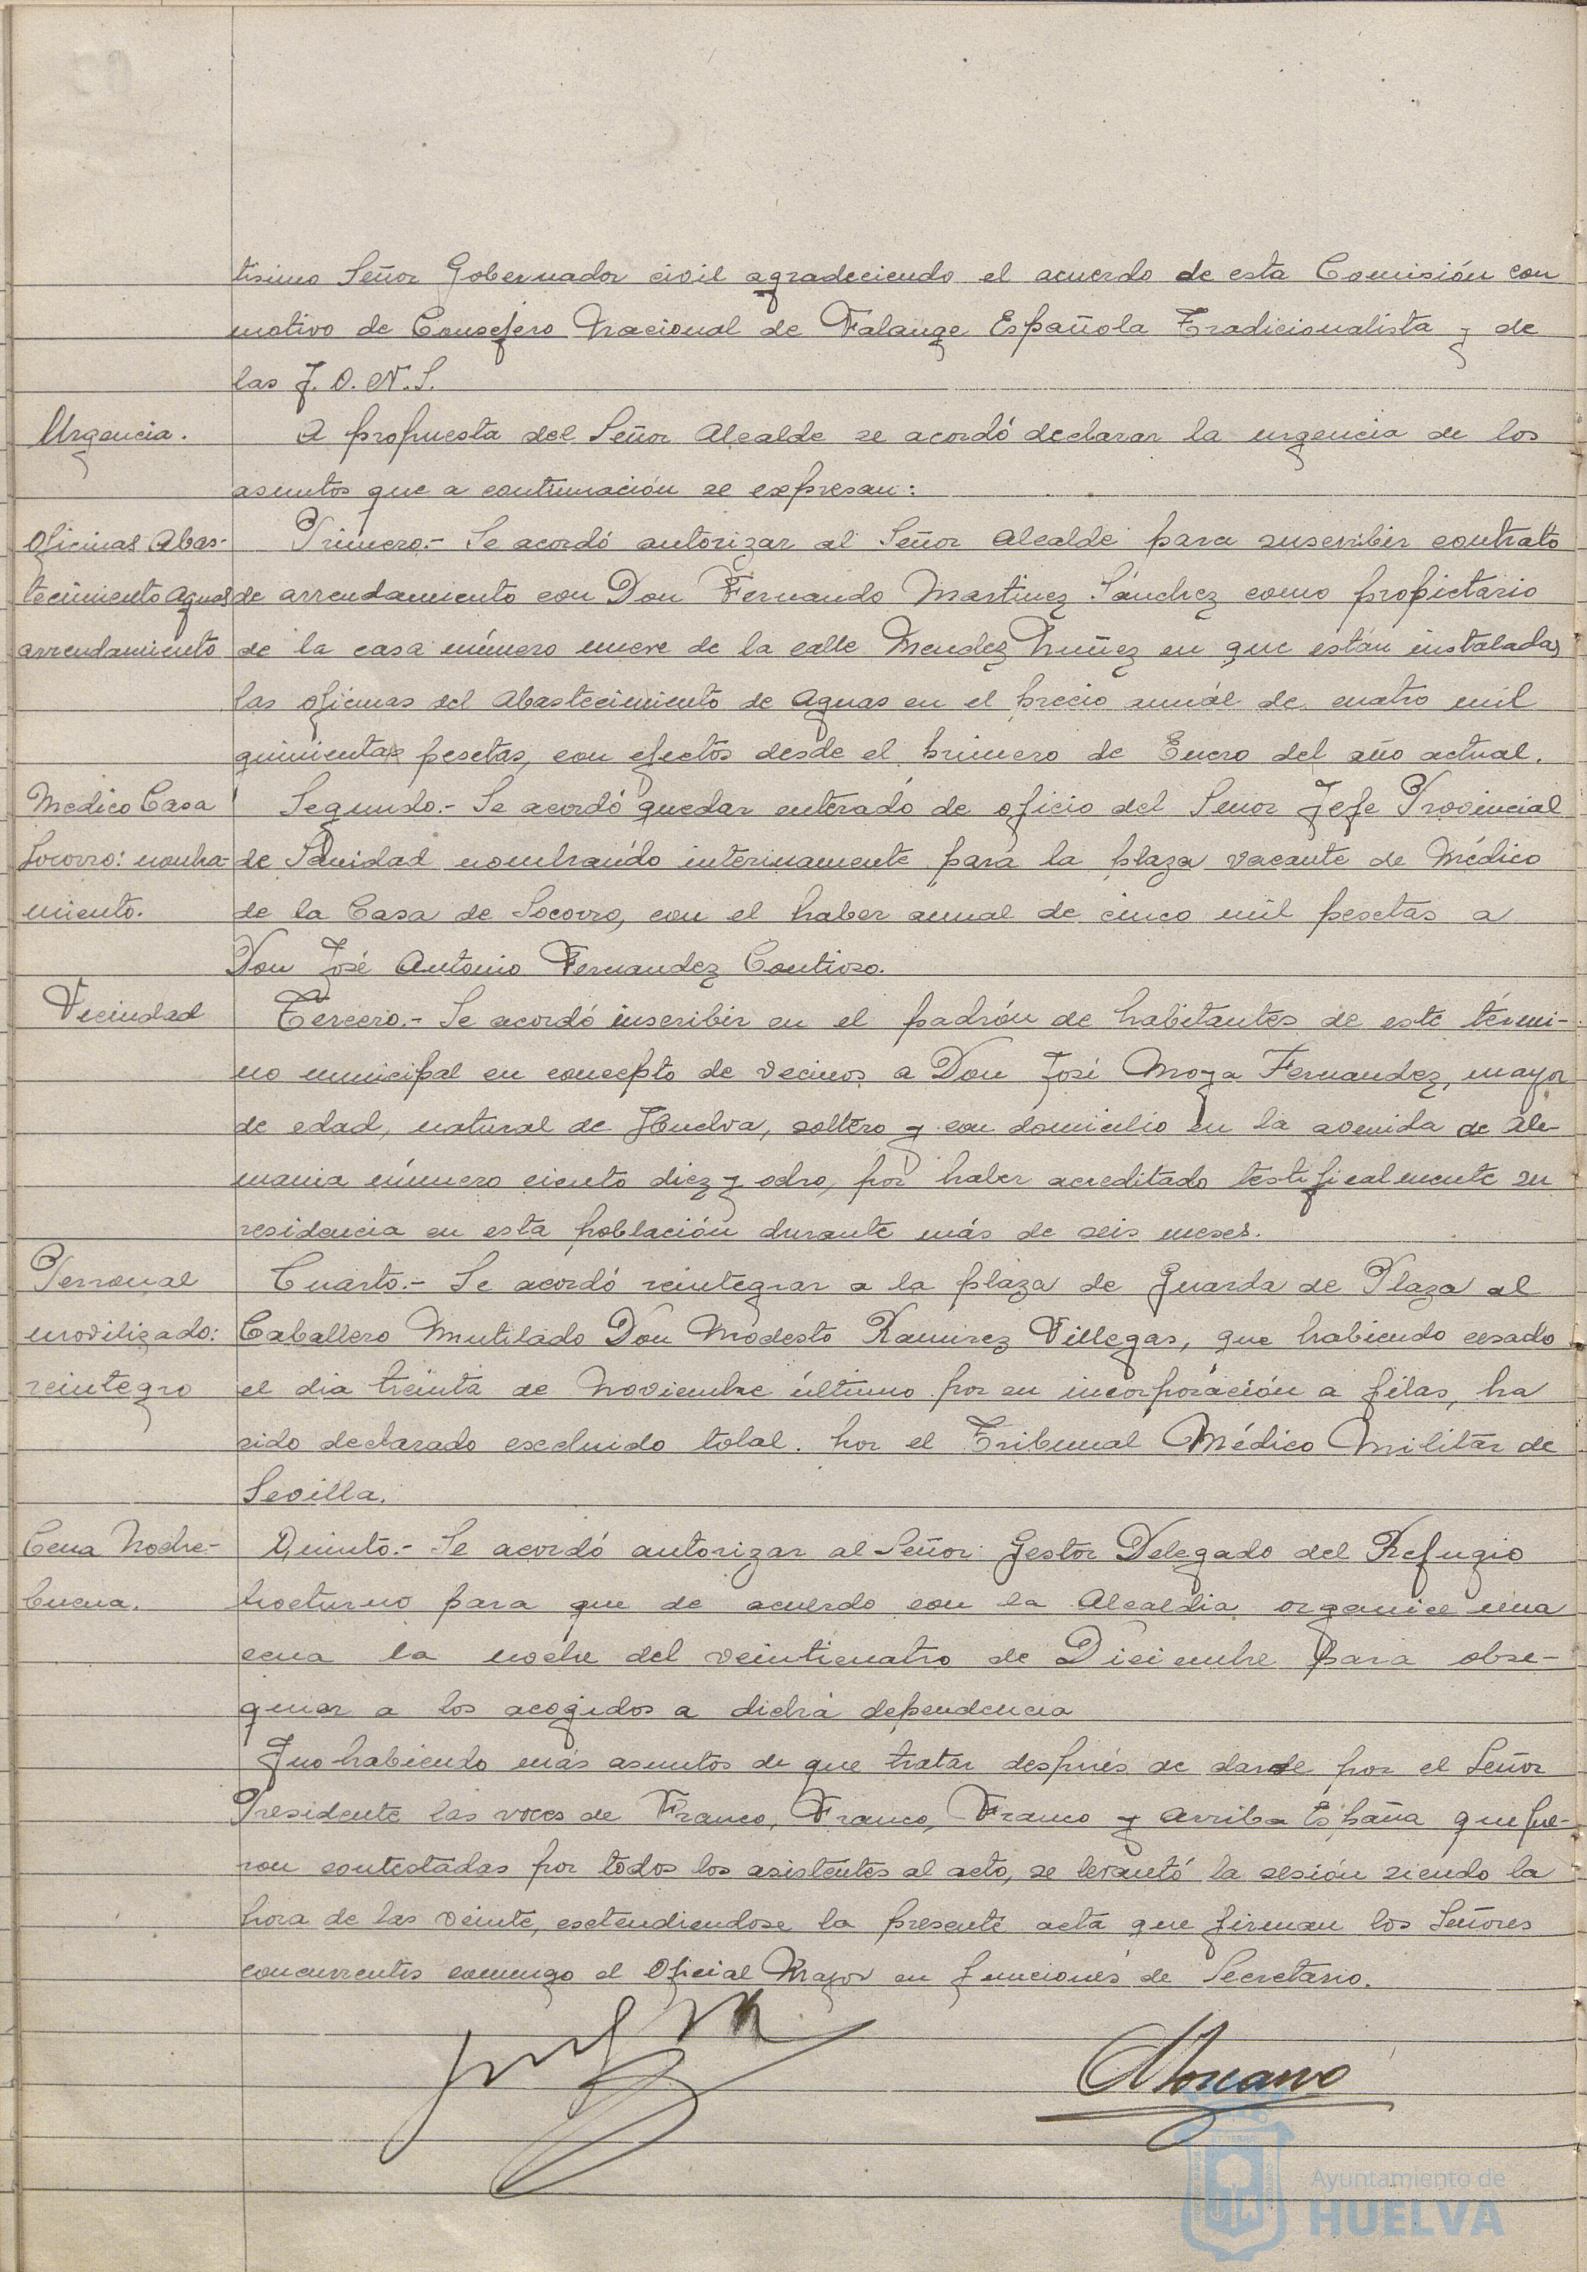 tisimo Señor Gobernador civil agradeciendo el acuerdo de esta Comisión con
motivo de Consejero Nacional de Falange Española Tradicionalista y de
las J.O.N.S.
Urgencia.
A propuesta del Señor Alcalde se acordó declarar la urgencia de los
asuntos que a continuación se expresan:
Oficinas Abas-
tecimiento Aguas
arrendamiento
Primero.- Se acordó autorizar al Señor Alcalde para suscribir contrato
de arrendamiento con Don Fernando Martinez Sánchez como propietario
de la casa número nueve de la calle Mendez Nuñez en que están instaladas
las oficinas del Abastecimiento de Aguas en el precio anual de cuatro mil
quinientas pesetas, con efectos desde el primero de Enero del año actual.
Medico Casa
Socorro: nombra-
miento.
Segundo.- Se acordó quedar enterado de oficio del Señor Jefe Provincial
de Sanidad nombrando interinamente para la plaza vacante de Médico
de la Casa de Socorro, con el haber anual de cinco mil pesetas a
Don José Antonio Fernandez Contioso.
Vecindad
Tercero.- Se acordó inscribir en el padrón de habitantes de este térmi-
no municipal en concepto de vecinos a Don José Moya Fernandez, mayor
de edad, natural de Huelva, soltero y con domicilio en la avenida de Ale-
mania número ciento diez y ocho, por haber acreditado testificalmente su
residencia en esta población durante más de seis meses.
Personal
movilizado:
reintegro
Cuarto.- Se acordó reintegrar a la plaza de Guarda de Plaza al
Caballero Mutilado Don Modesto Ramirez Villegas, que habiendo cesado
el dia treinta de Noviembre último por su incorporación a filas, ha
sido declarado excluido total por el Tribunal Médico Militar de
Sevilla.
Cena Noche-
buena.
Quinto.- Se acordó autorizar al Señor Gestor Delegado del Refugio
Nocturno para que de acuerdo con la Alcaldia organice una
cena la noche del veinticuatro de Diciembre para obse-
quiar a los acogidos a dicha dependencia
Y no habiendo más asuntos de que tratar después de darse por el Señor
Presidente las voces de Franco, Franco, Franco y Arriba España que fue-
ron contestadas por todos los asistentes al acto, se levantó la sesión siendo la
hora de las veinte, extendiendose la presente acta que firman los Señores
concurrentes conmigo el Oficial Mayor en funciones de Secretario.
Ayuntamiento de
HUELVA